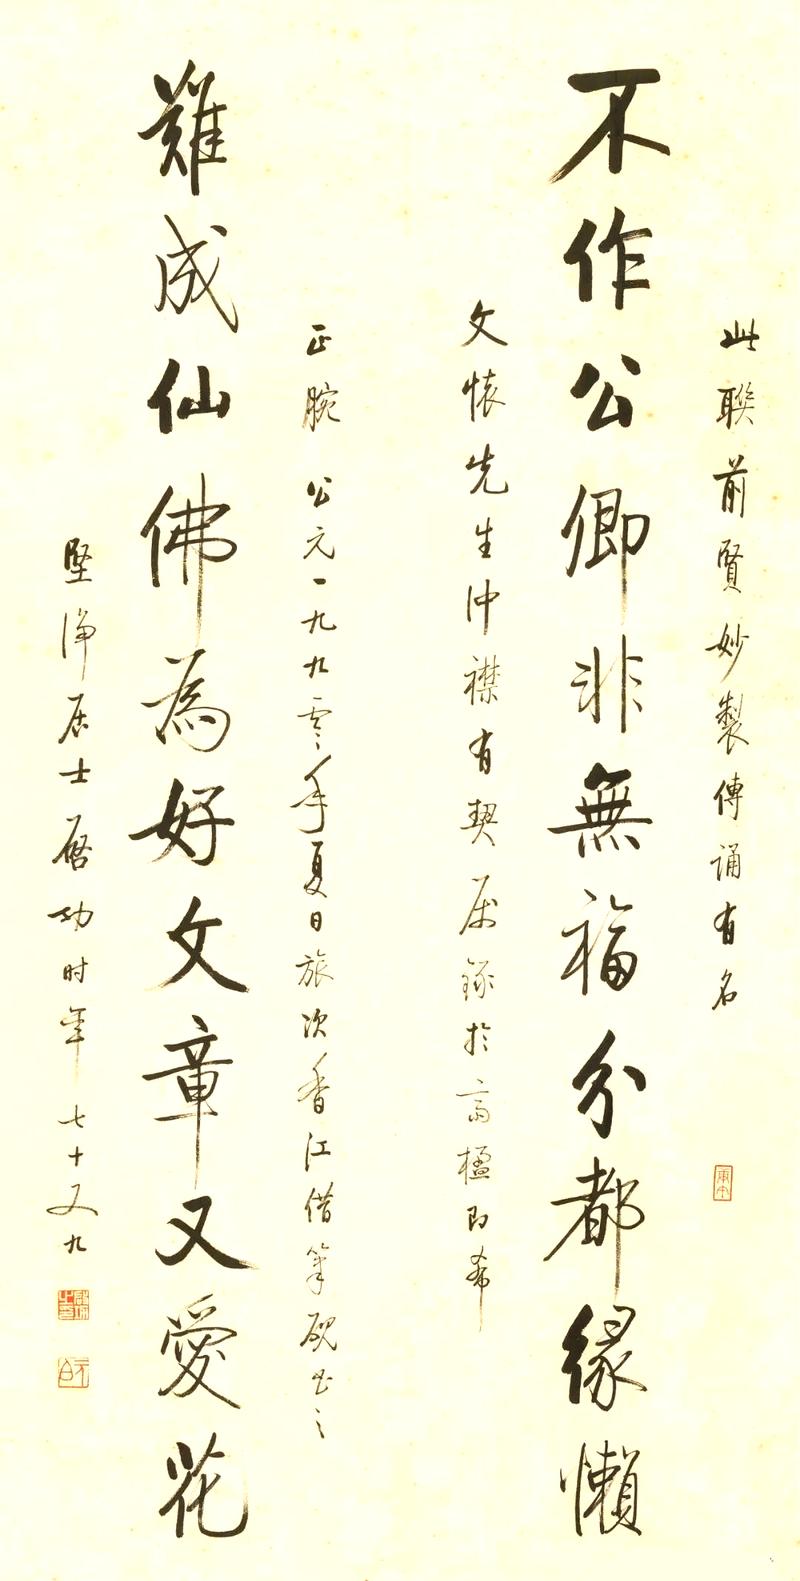 此聯前賢妙製傳誦有名
不作公卿非無福分都緣懶
文懷先生沖襟有契屬錄於高楹即希
正腕 公元一九九零年夏日旅次香江借筆硯書之
難成仙佛為好文章又愛花
堅淨居士启功时年七十又九
启功之印
元白